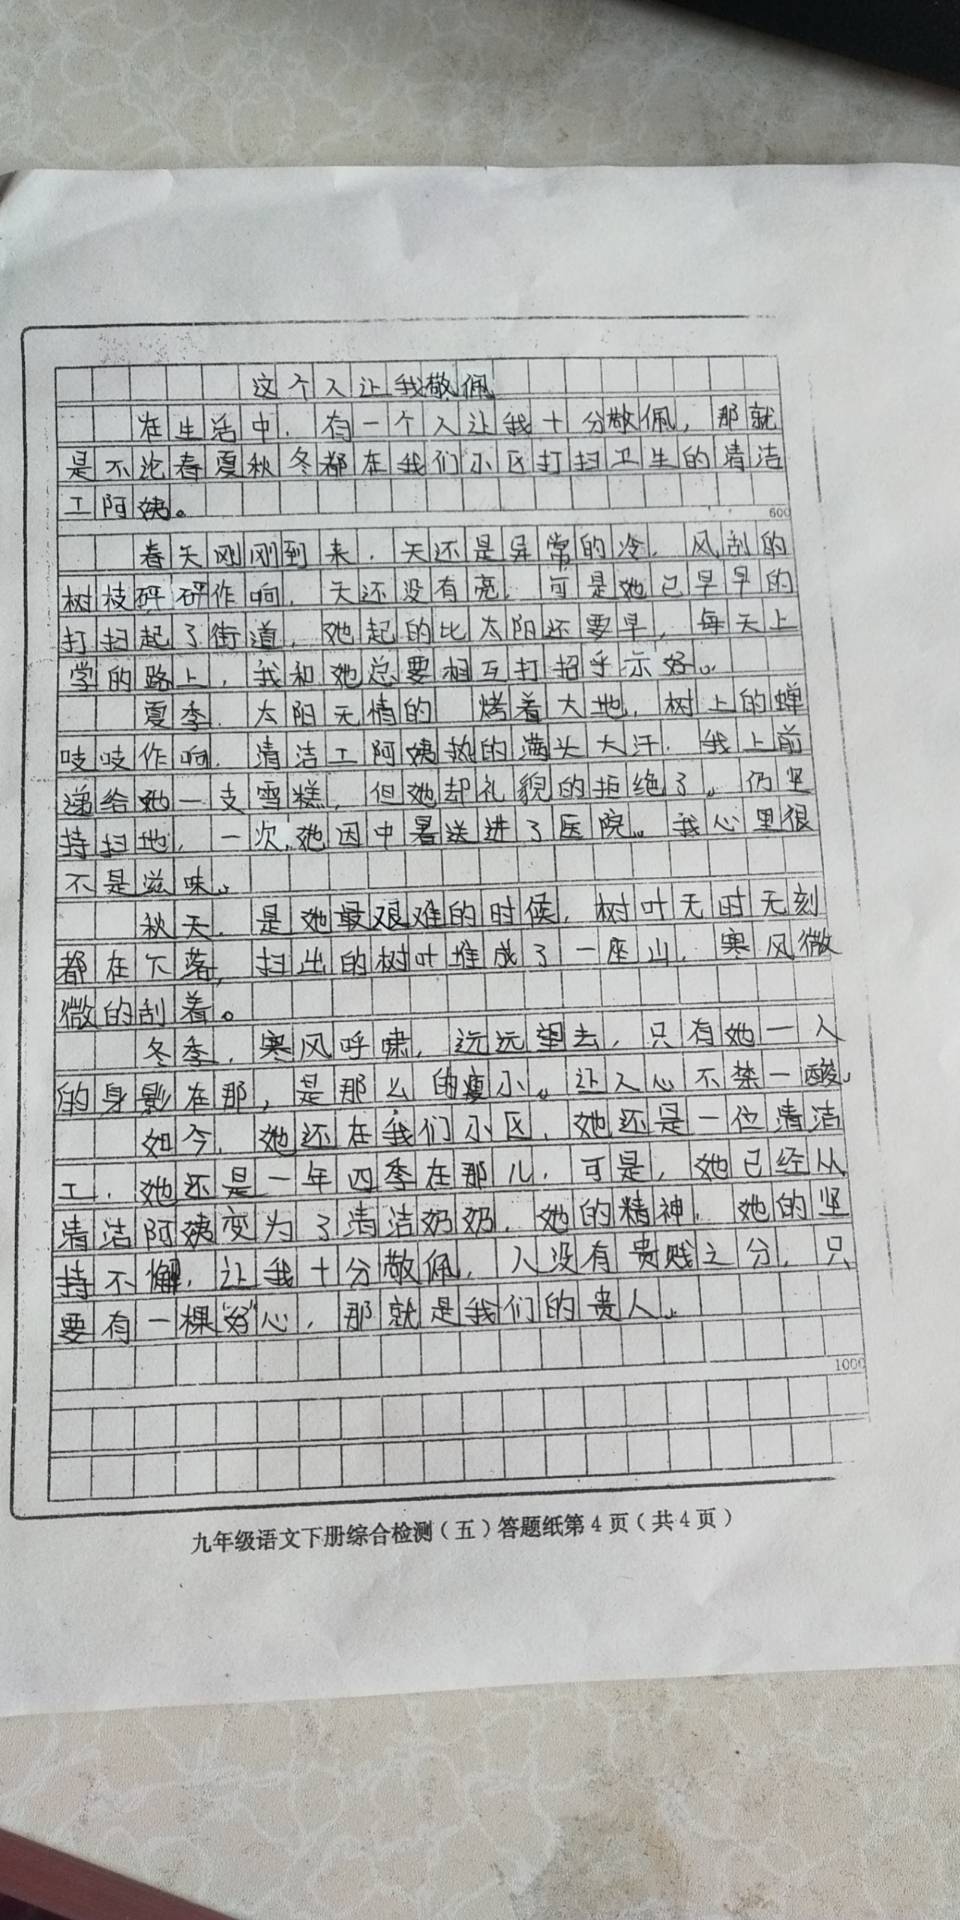 这个人让我敬佩
在生活中，有一个人让我十分敬佩，那就
是不论春夏秋冬都在我们小区打扫卫生的清洁
工阿姨。
600
春天刚刚到来，天还是异常的冷，风刮的
树枝砰砰作响，天还没有亮，可是她已早早的
打扫起了街道，她起的比太阳还要早，每天上
学的路上，我和她总要相互打招乎示好。
夏季，太阳无情的 烤着大地，树上的蝉
吱吱作响，清洁工阿姨热的满头大汗，我上前
递给她一支雪糕，但她却礼貌的拒绝了。仍坚
持扫地，一次，她因中暑送进了医院。我心里很
不是滋味。
秋天，是她最艰难的时候，树叶无时无刻
都在下落，扫出的树叶堆成了一座山，寒风微
微的刮着。
冬季，寒风呼啸，远远望去，只有她一人
的身影在那，是那么的瘦小。让人心不禁一酸。
如今，她还在我们小区，她还是一位清洁
工，她还是一年四季在那儿，可是，她已经从
清洁阿姨变为了清洁奶奶，她的精神，她的坚
持不懈，让我十分敬佩，人没有贵贱之分，只
要有一棵“好”心，那就是我们的贵人。
1000
九年级语文下册综合检测（五）答题纸第4页（共4页）